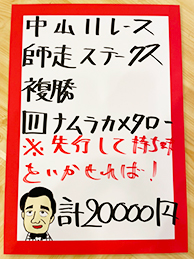 中山11レース
師走ステークス
複勝
11ナムラカメタロー
※先行して持ち味
をいかせれば!
計20000円